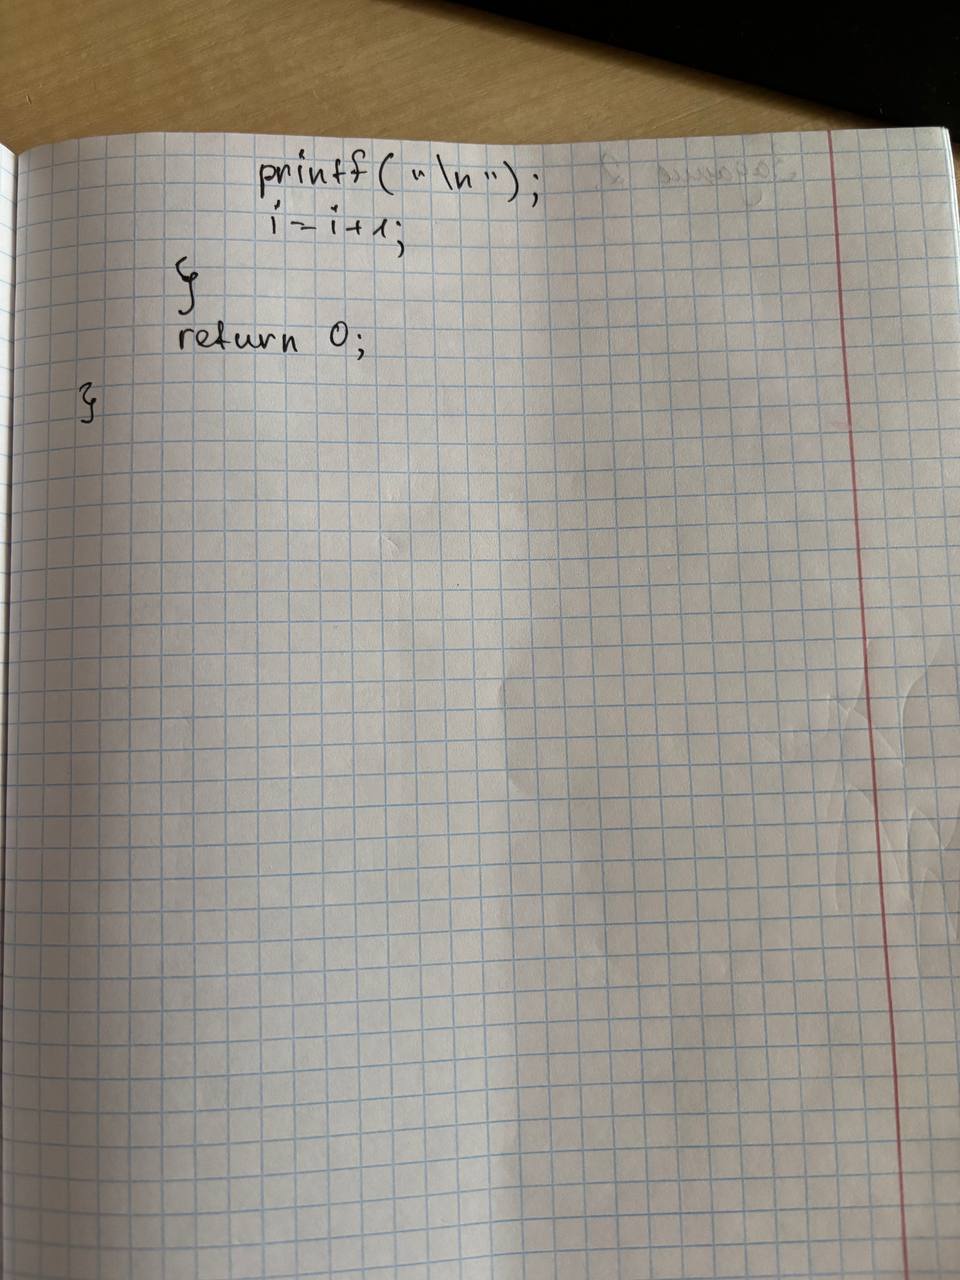 printf("\n");
i = i + 1;
}
return 0;
}